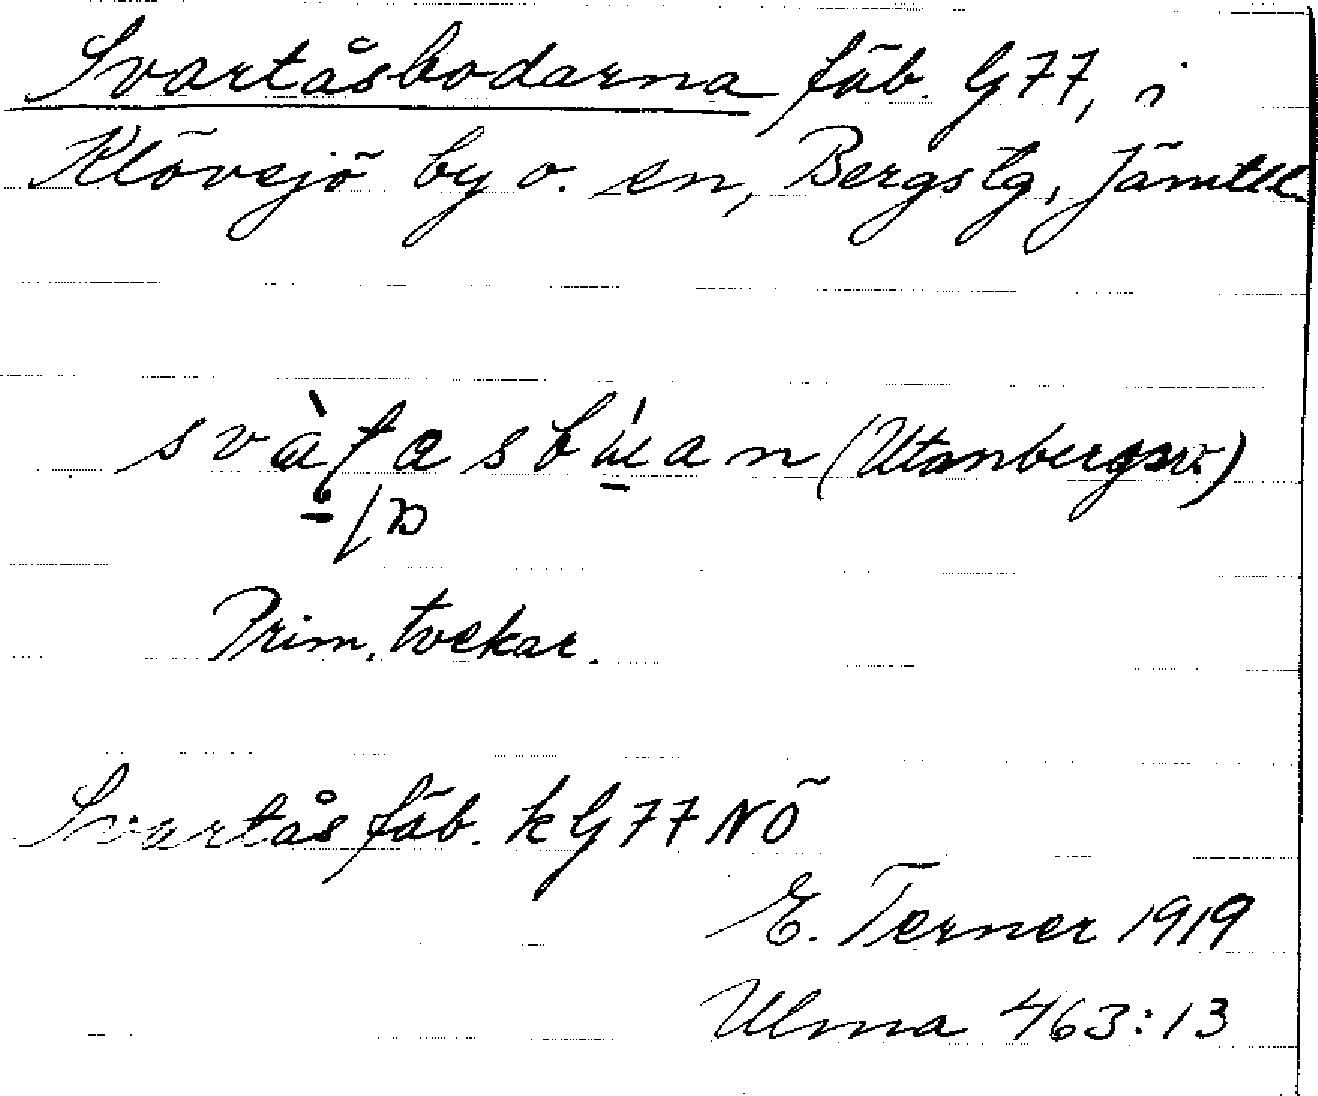 Svartåsbodarna fäb. G77, i
Klövsjö by o. sn, Bergs tg, Jämtl.
(Utanbergsv.)
Prim. tvekar.
Svartås fäb. k G77 NÖ
E. Terner 1919
Ulma 463:13